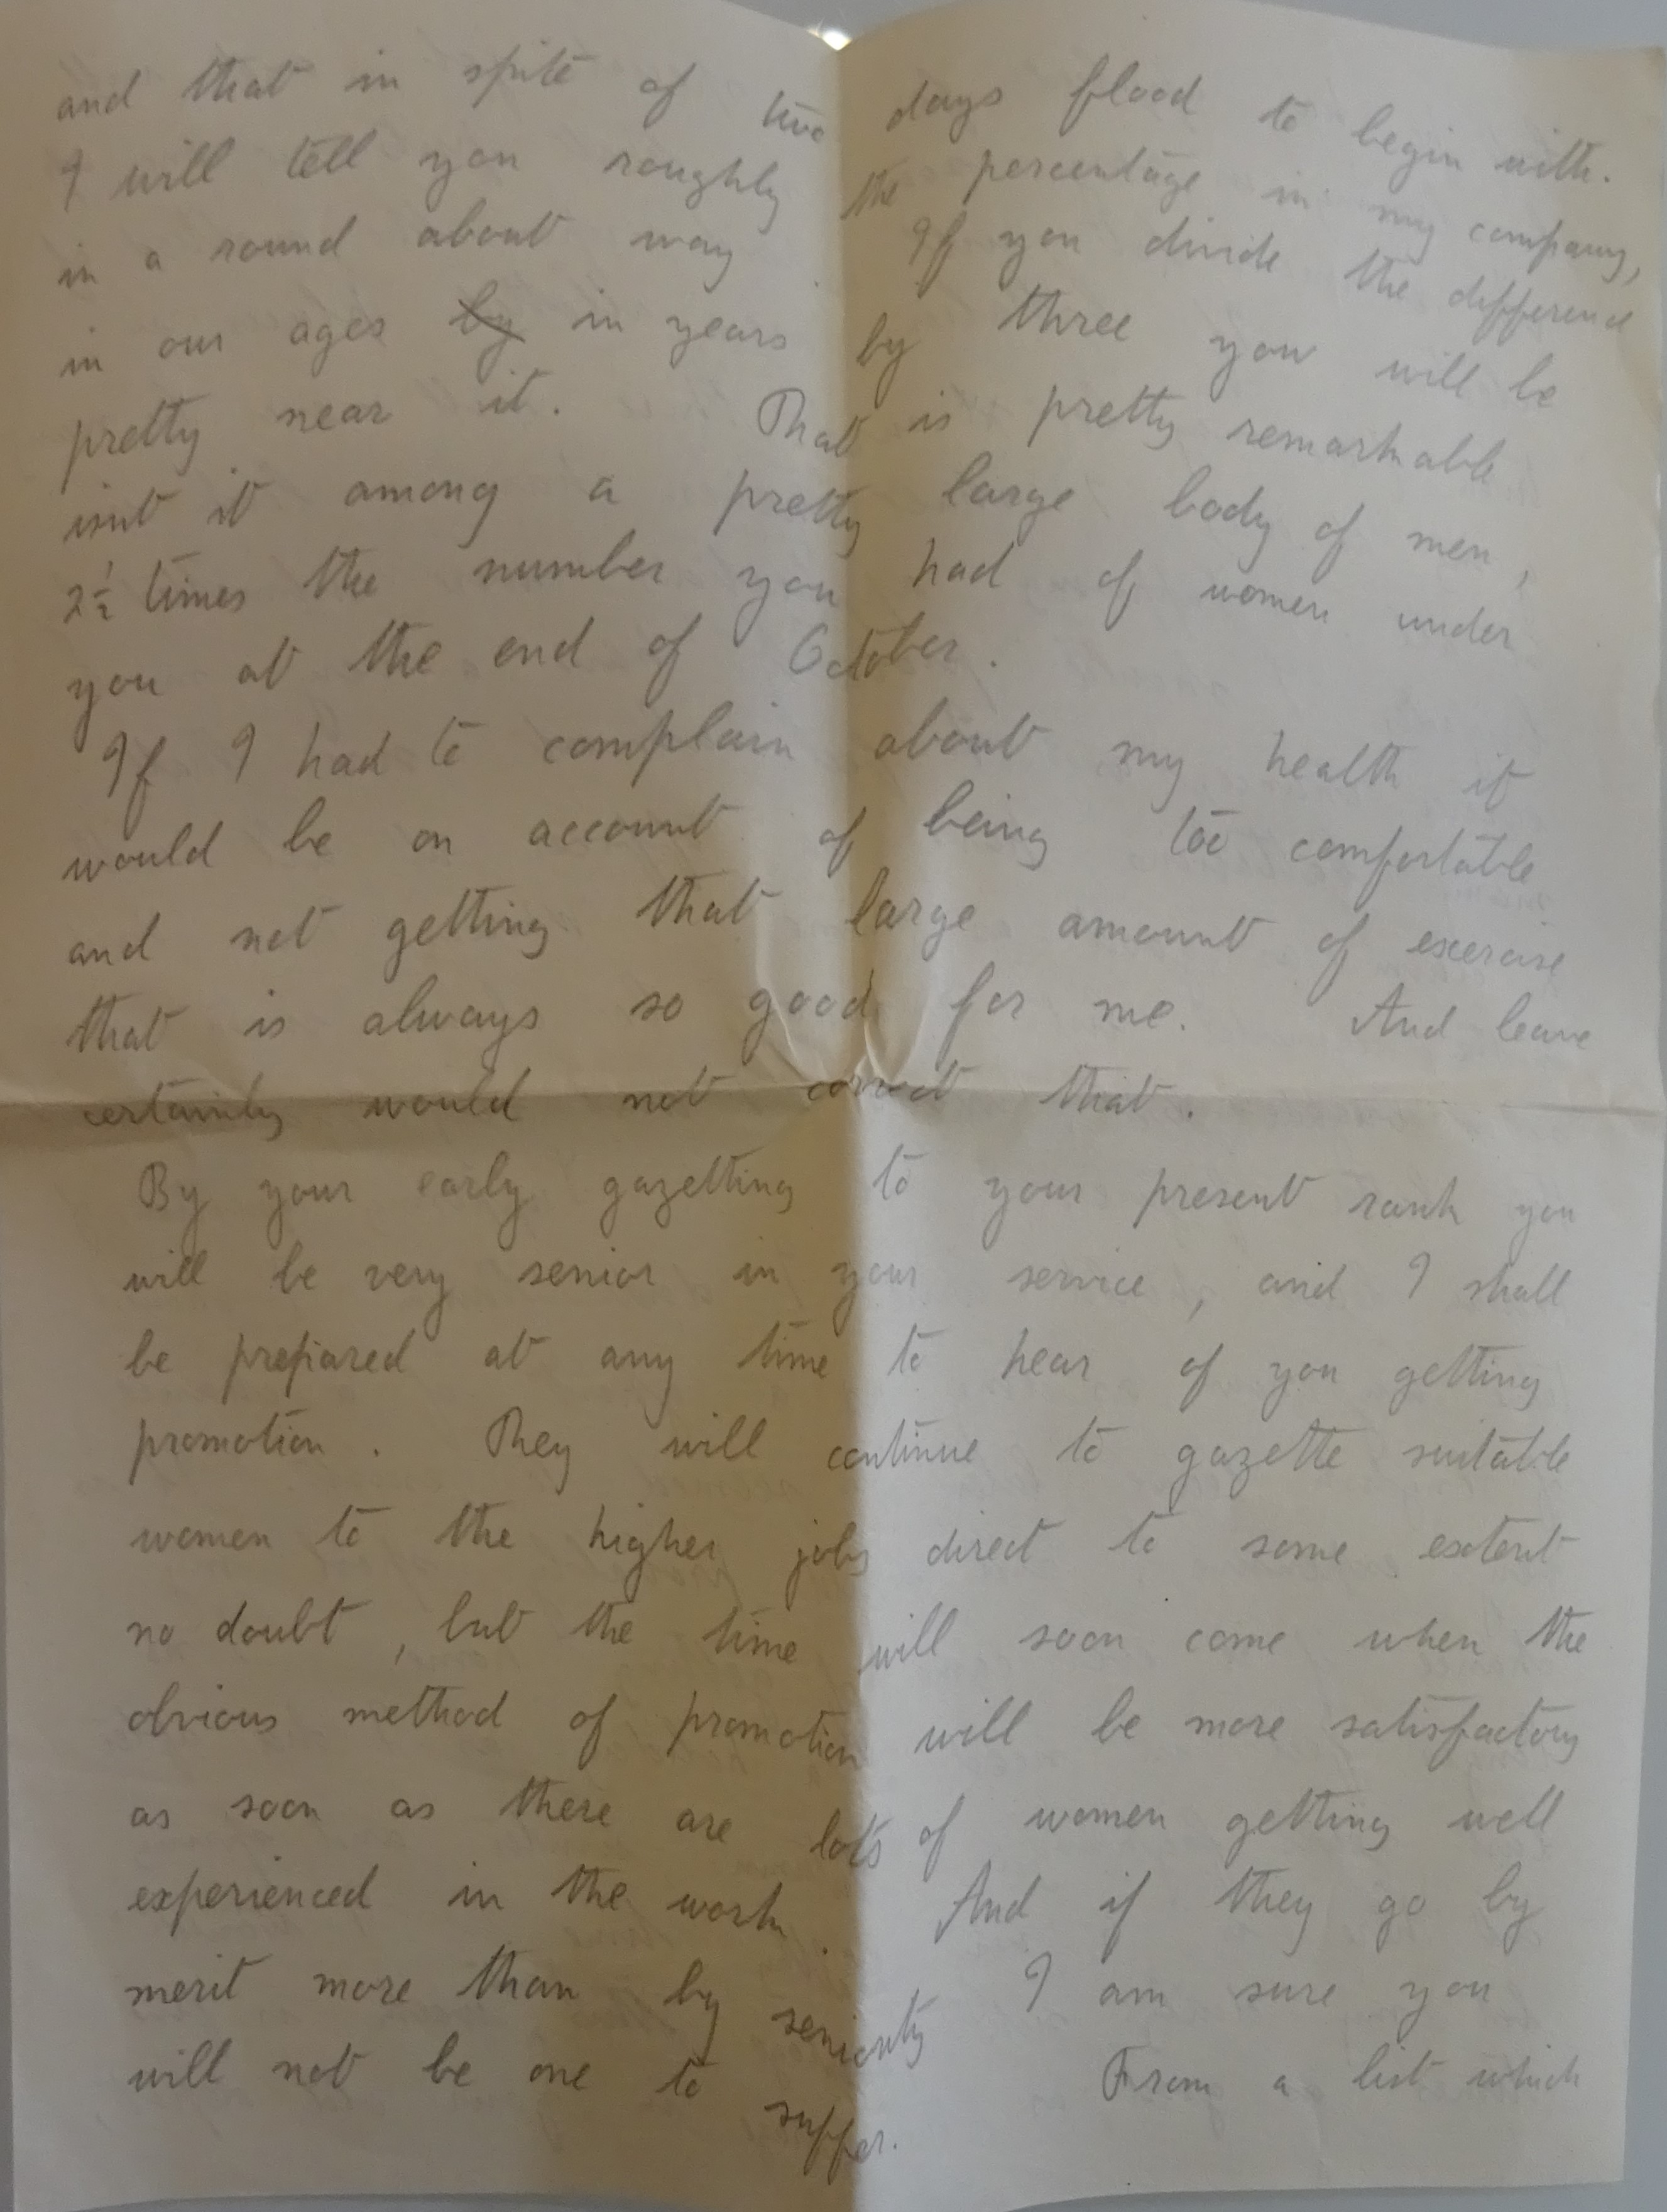 and that in spite of two days flood to begin with.
I will tell you roughly the percentage in my company,
in a round about way. If you divide the difference
in our ages by in years by three you will be
pretty near it. That is pretty remarkable
isnt it among a pretty large body of men,
2½ times the number you had of women under
you at the end of October.
If I had to complain about my health it
would be on account of being too comfortable
and not getting that large amount of exercise
that is always so good for me. And leave
certainly would not correct that.
By your early gazetting to your present rank you
will be very senior in your service, and I shall
be prepared at any time to hear of you getting
promotion. They will continue to gazette suitable
women to the higher jobs direct to some extent
no doubt, but the time will soon come when the
obvious method of promotion will be more satisfactory
as soon as there are lots of women getting well
experienced in the work. And if they go by
merit more than by seniority I am sure you
will not be one to suffer. From a list which